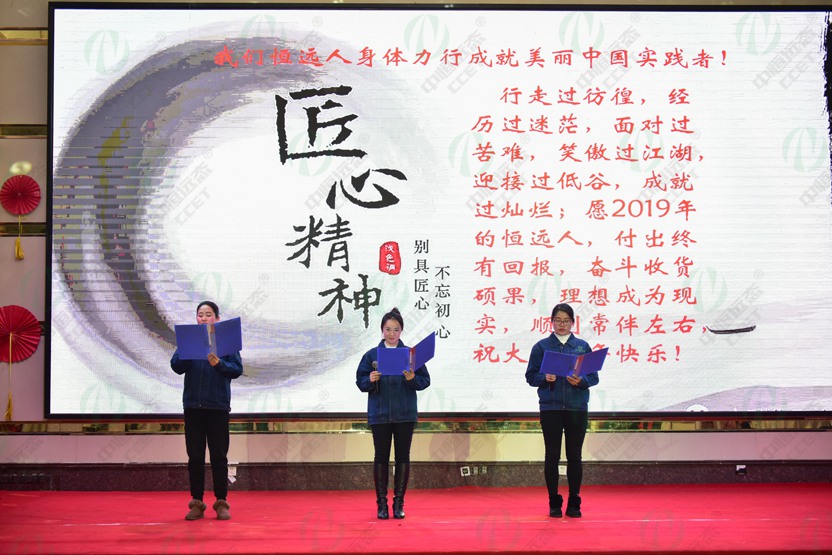 我们恒远人身体力行成就美丽中国实践者！
匠心精神
浅色调
别具匠心
不忘初心
行走过彷徨，经
历过迷茫，面对过
苦难，笑傲过江湖，
迎接过低谷，成就
过灿烂；愿2019年
的恒远人，付出终
有回报，奋斗收货
硕果，理想成为现
实，顺利常伴左右，
祝大 快乐！
中恒远态
CCET